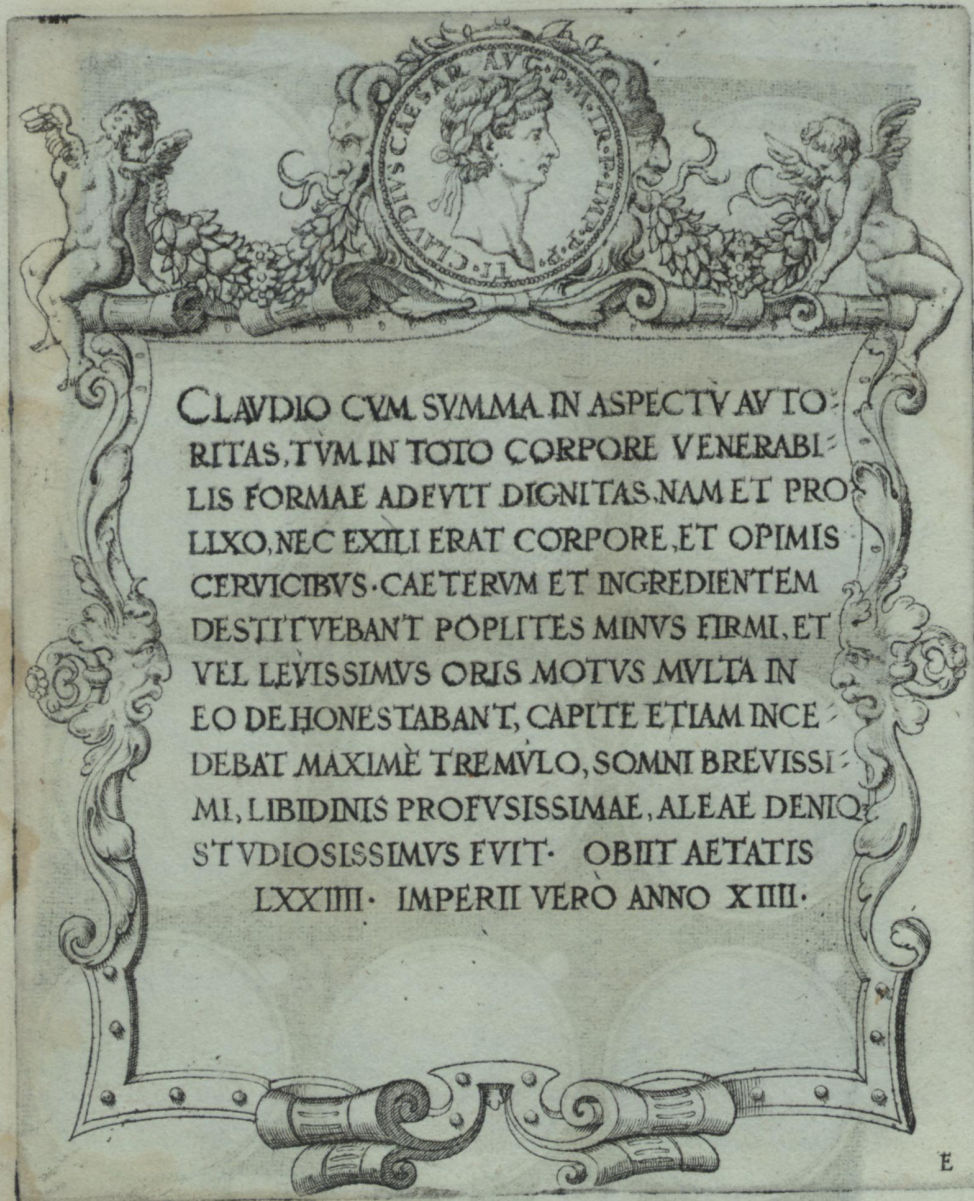 TI·CLAVDIVS CAESAR AVG·P·M·TR·P·IMP·P·P·
CLAVDIO CVM SVMMA IN ASPECTV AVTO:
RITAS, TVM IN TOTO CORPORE VENERABI:
LIS FORMAE ADFVIT DIGNITAS. NAM ET PRO
LIXO, NEC EXILI ERAT CORPORE, ET OPIMIS
CERVICIBVS· CAETERVM ET INGREDIENTEM
DESTITVEBANT POPLITES MINVS FIRMI, ET
VEL LEVISSIMVS ORIS MOTVS MVLTA IN
EO DEHONESTABANT, CAPITE ETIAM INCE:
DEBAT MAXIMÈ TREMVLO, SOMNI BREVISSI:
MI, LIBIDINIS PROFVSISSIMAE, ALEAE DENIQ
STVDIOSISSIMVS FVIT· OBIIT AETATIS
LXXIIII· IMPERII VERÒ ANNO XIIII·
E